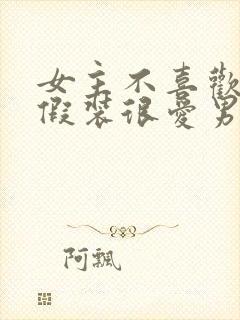 女主不喜歡
假裝很愛男
阿飄